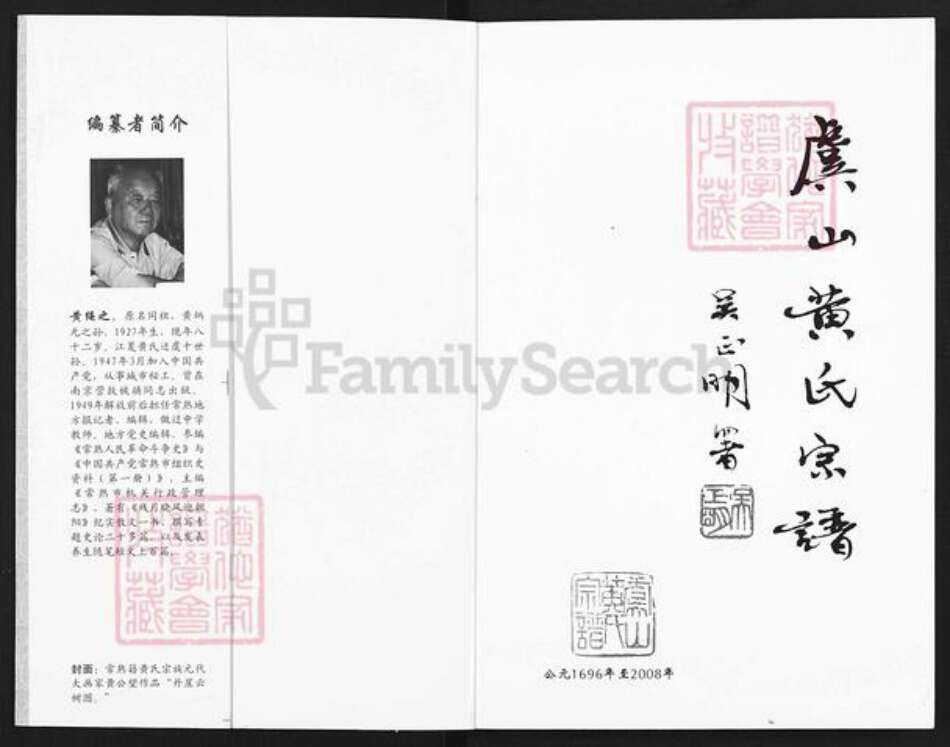 编纂者简介
黄继之，原名同祖，黄炳
元之孙，1927年生，现年八
十二岁，江夏黄氏迁虞十世
孙。1947年3月加入中国共
产党，从事城市秘工，曾在
南京营救被捕同志出狱。
1949年解放前后担任常熟地
方报记者、编辑，做过中学
教师、地方党史编辑，参编
《常熟人民革命斗争史》与
《中国共产党常熟市组织史
资料（第一册）》，主编
《常熟市机关行政管理
志》，著有《残月晓风迎朝
阳》纪实散文一书，撰写专
题史论二十多篇，以及发表
养生随笔短文上百篇。
封面：常熟籍黄氏宗族元代
大画家黄公望作品“丹崖云
树图。”
虞山黄氏宗譜
吴正明署
虞山黄氏宗譜
公元1696年至2008年
譜學會
收藏
譜學會
收藏
FamilySearch